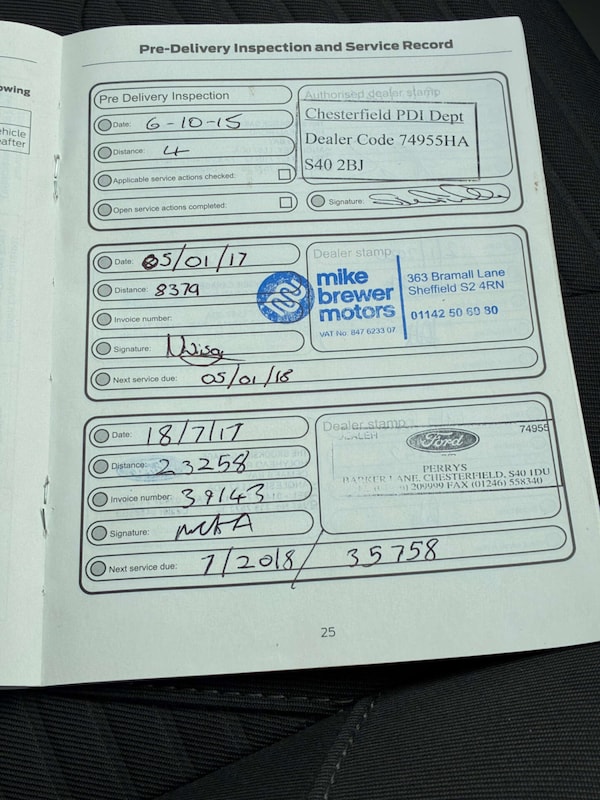 owing
hicle
after
Pre-Delivery Inspection and Service Record
Pre Delivery Inspection
Date: 6-10-15
Distance: 4
Applicable service actions checked:
Open service actions completed:
Authorised dealer stamp
Chesterfield PDI Dept
Dealer Code 74955HA
S40 2BJ
Signature:
Date: 05/01/17
Distance: 8379
Invoice number:
Signature:
Next service due: 05/01/18
Dealer stamp
mike
brewer
motors
VAT No. 847 6233 07
363 Bramall Lane
Sheffield S2 4RN
01142 50 60 80
Date: 18/7/17
Distance: 23258
Invoice number: 39143
Signature:
Next service due: 7/2018 / 35758
Dealer stamp
Ford
74955
PERRYS
LANE, CHESTERFIELD, S40 1DU
209999 FAX (01246) 558340
25